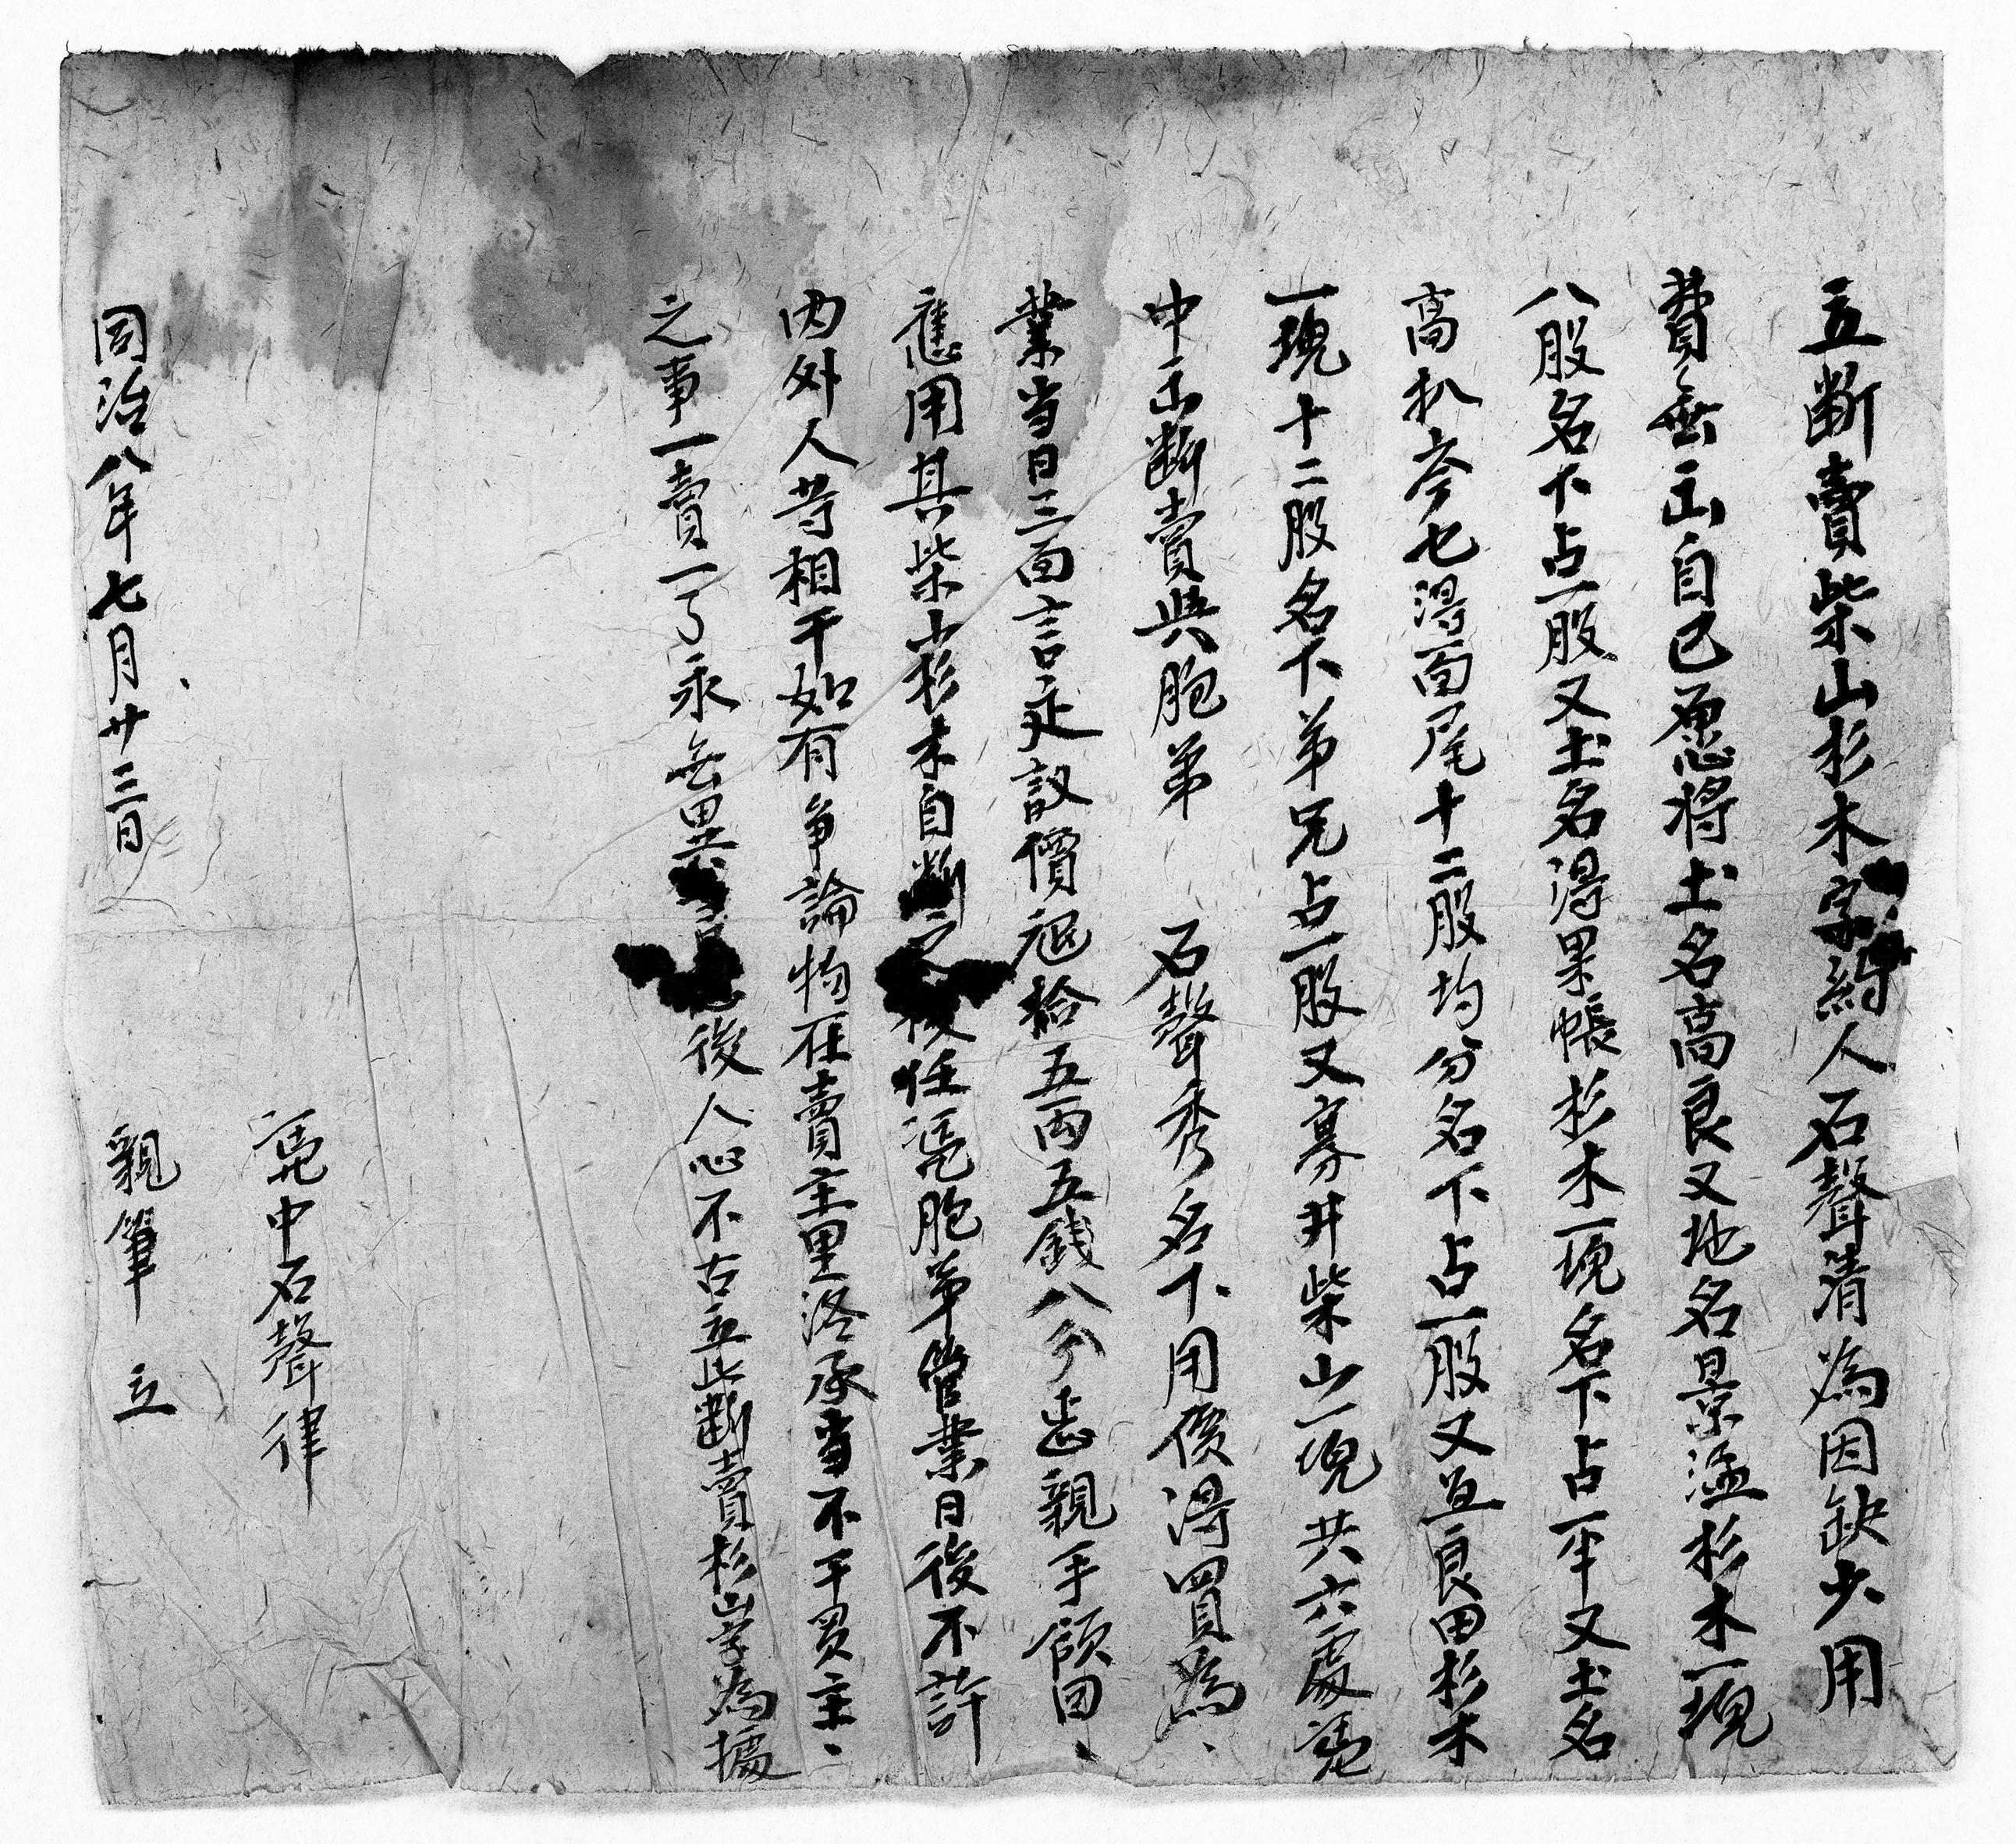 立断賣柴山杉木字約人石聲清為因缺少用
費無出自己愿將土名高良又地名景溋杉木一塊
八股名下占一股又土名得果帳杉木一塊名下占一半又土名
高扒夸七得面尾十二股均分名下占一股又亘良田杉木
一塊十二股名下弟兄占一股又寡井柴山一塊共六處凴
中出断賣與胞弟 石聲秀名下用價得買為
業当日三面言定議價錢拾五両五錢八分正親手領回
應用其柴山杉木自断之後任凴胞弟管業日後不許
內外人等相干如有爭論物在賣主里落承當不干買主
之事一賣一了永無異言後人心不古立此断賣杉山字為據
凴中石聲律
同治八年七月廿三日 親筆 立